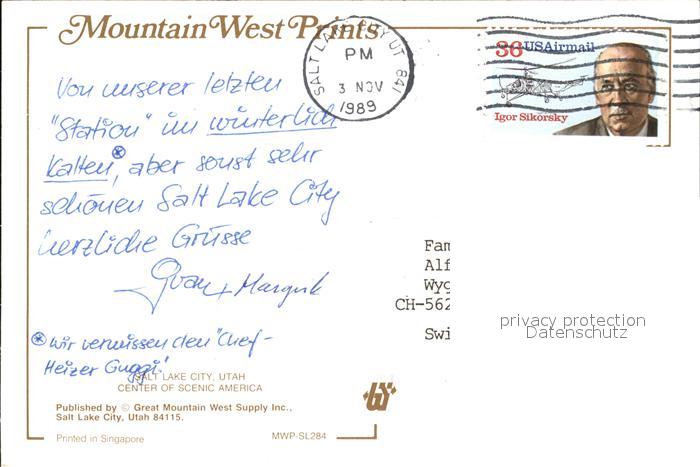 Mountain West Prints
SALT LAKE CITY UT 841
PM
3 NOV
1989
36 USAirmail
Igor Sikorsky
Von unserer letzten
"Station" im winterlich
kalten⊛, aber sonst sehr
schönen Salt Lake City
herzliche Grüsse
+
⊛ wir vermissen den "Chef-
Heizer Guggi!
Fam
Alf
Wyg
CH-562
Swi
privacy protection
Datenschutz
SALT LAKE CITY, UTAH
CENTER OF SCENIC AMERICA
Published by © Great Mountain West Supply Inc.,
Salt Lake City, Utah 84115.
Printed in Singapore
MWP-SL284